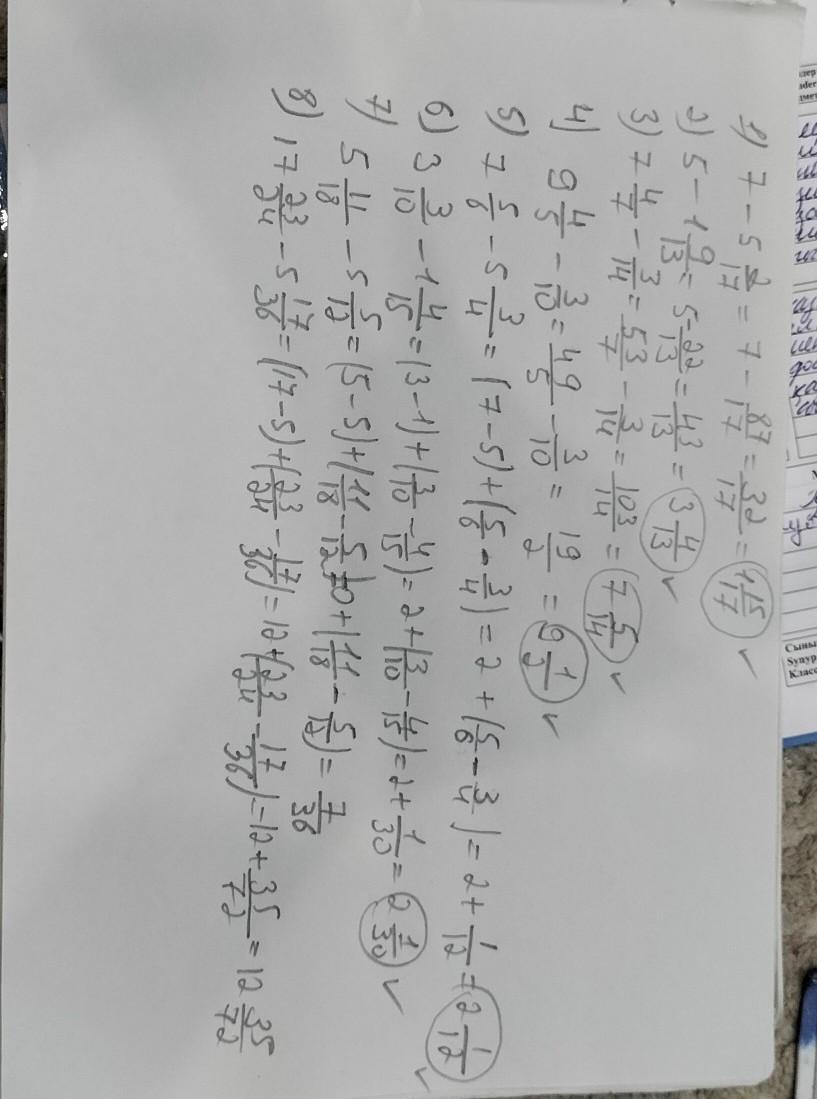 1) 7 - 5 2/17 = 7 - 87/17 = 32/17 = 1 15/17 ✓
2) 5 - 1 9/13 = 5 - 22/13 = 43/13 = 3 4/13 ✓
3) 7 4/7 - 3/14 = 53/7 - 3/14 = 103/14 = 7 5/14 ✓
4) 9 4/5 - 3/10 = 49/5 - 3/10 = 19/2 = 9 1/2 ✓
5) 7 5/6 - 5 3/4 = (7-5) + (5/6 - 3/4) = 2 + (5/6 - 3/4) = 2 + 1/12 = 2 1/12 ✓
6) 3 3/10 - 1 4/15 = (3-1) + (3/10 - 4/15) = 2 + (3/10 - 4/15) = 2 + 1/30 = 2 1/30 ✓
7) 5 11/18 - 5 5/12 = (5-5) + (11/18 - 5/12) = 0 + (11/18 - 5/12) = 7/36
8) 17 23/24 - 5 17/36 = (17-5) + (23/24 - 17/36) = 12 + (23/24 - 17/36) = 12 + 35/72 = 12 35/72
Сыны
Synyp
Класс